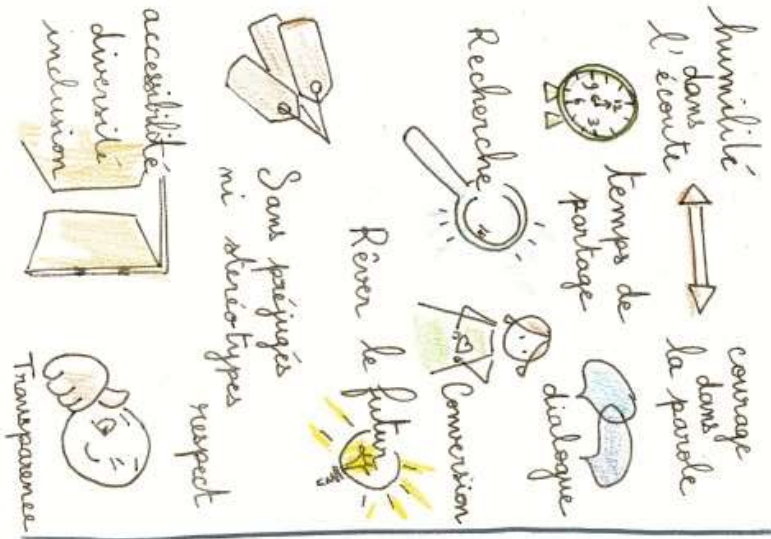 humilité
dans
l'écoute
courage
dans
la parole
12
9 3
6
temps de
partage
dialogue
Recherche
Conversion
Rêver le futur
Sans préjugés
ni stéréotypes
respect
accessibilité
diversité
inclusion
Transparence